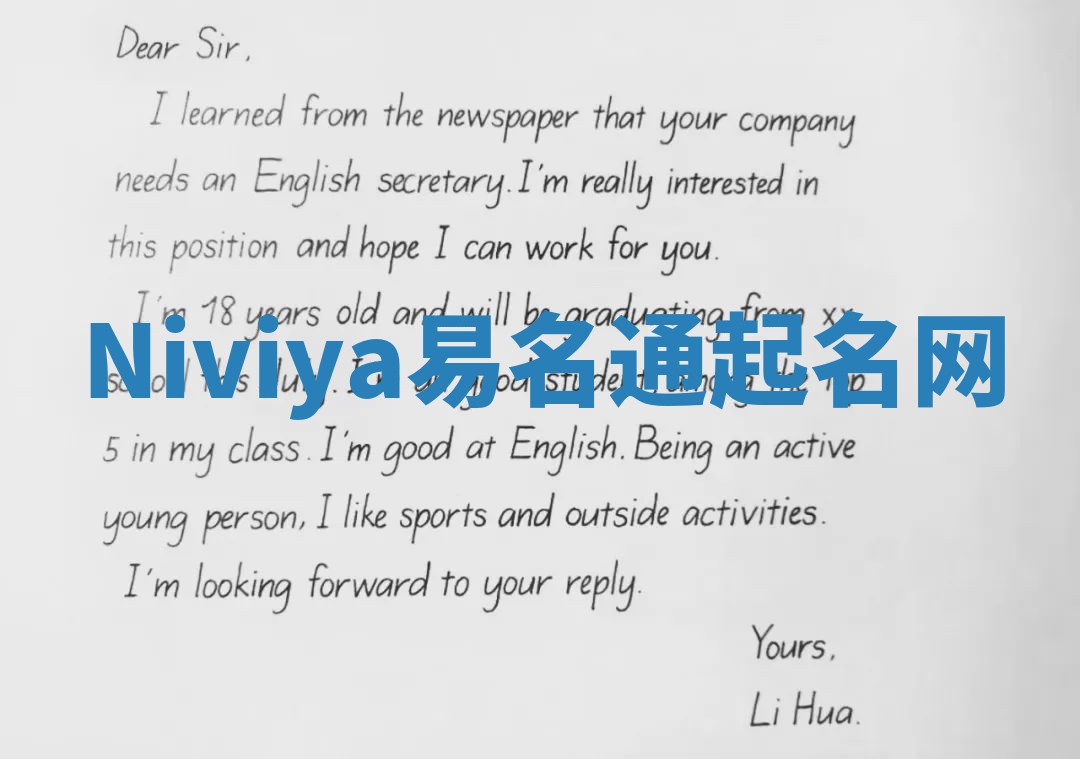 Dear Sir,
I learned from the newspaper that your company
needs an English secretary. I'm really interested in
this position and hope I can work for you.
I'm 18 years old and will be graduating from xx
Niviya易名通起名网
school this July. I'm a good student, among the Top
5 in my class. I'm good at English. Being an active
young person, I like sports and outside activities.
I'm looking forward to your reply.
Yours,
Li Hua.